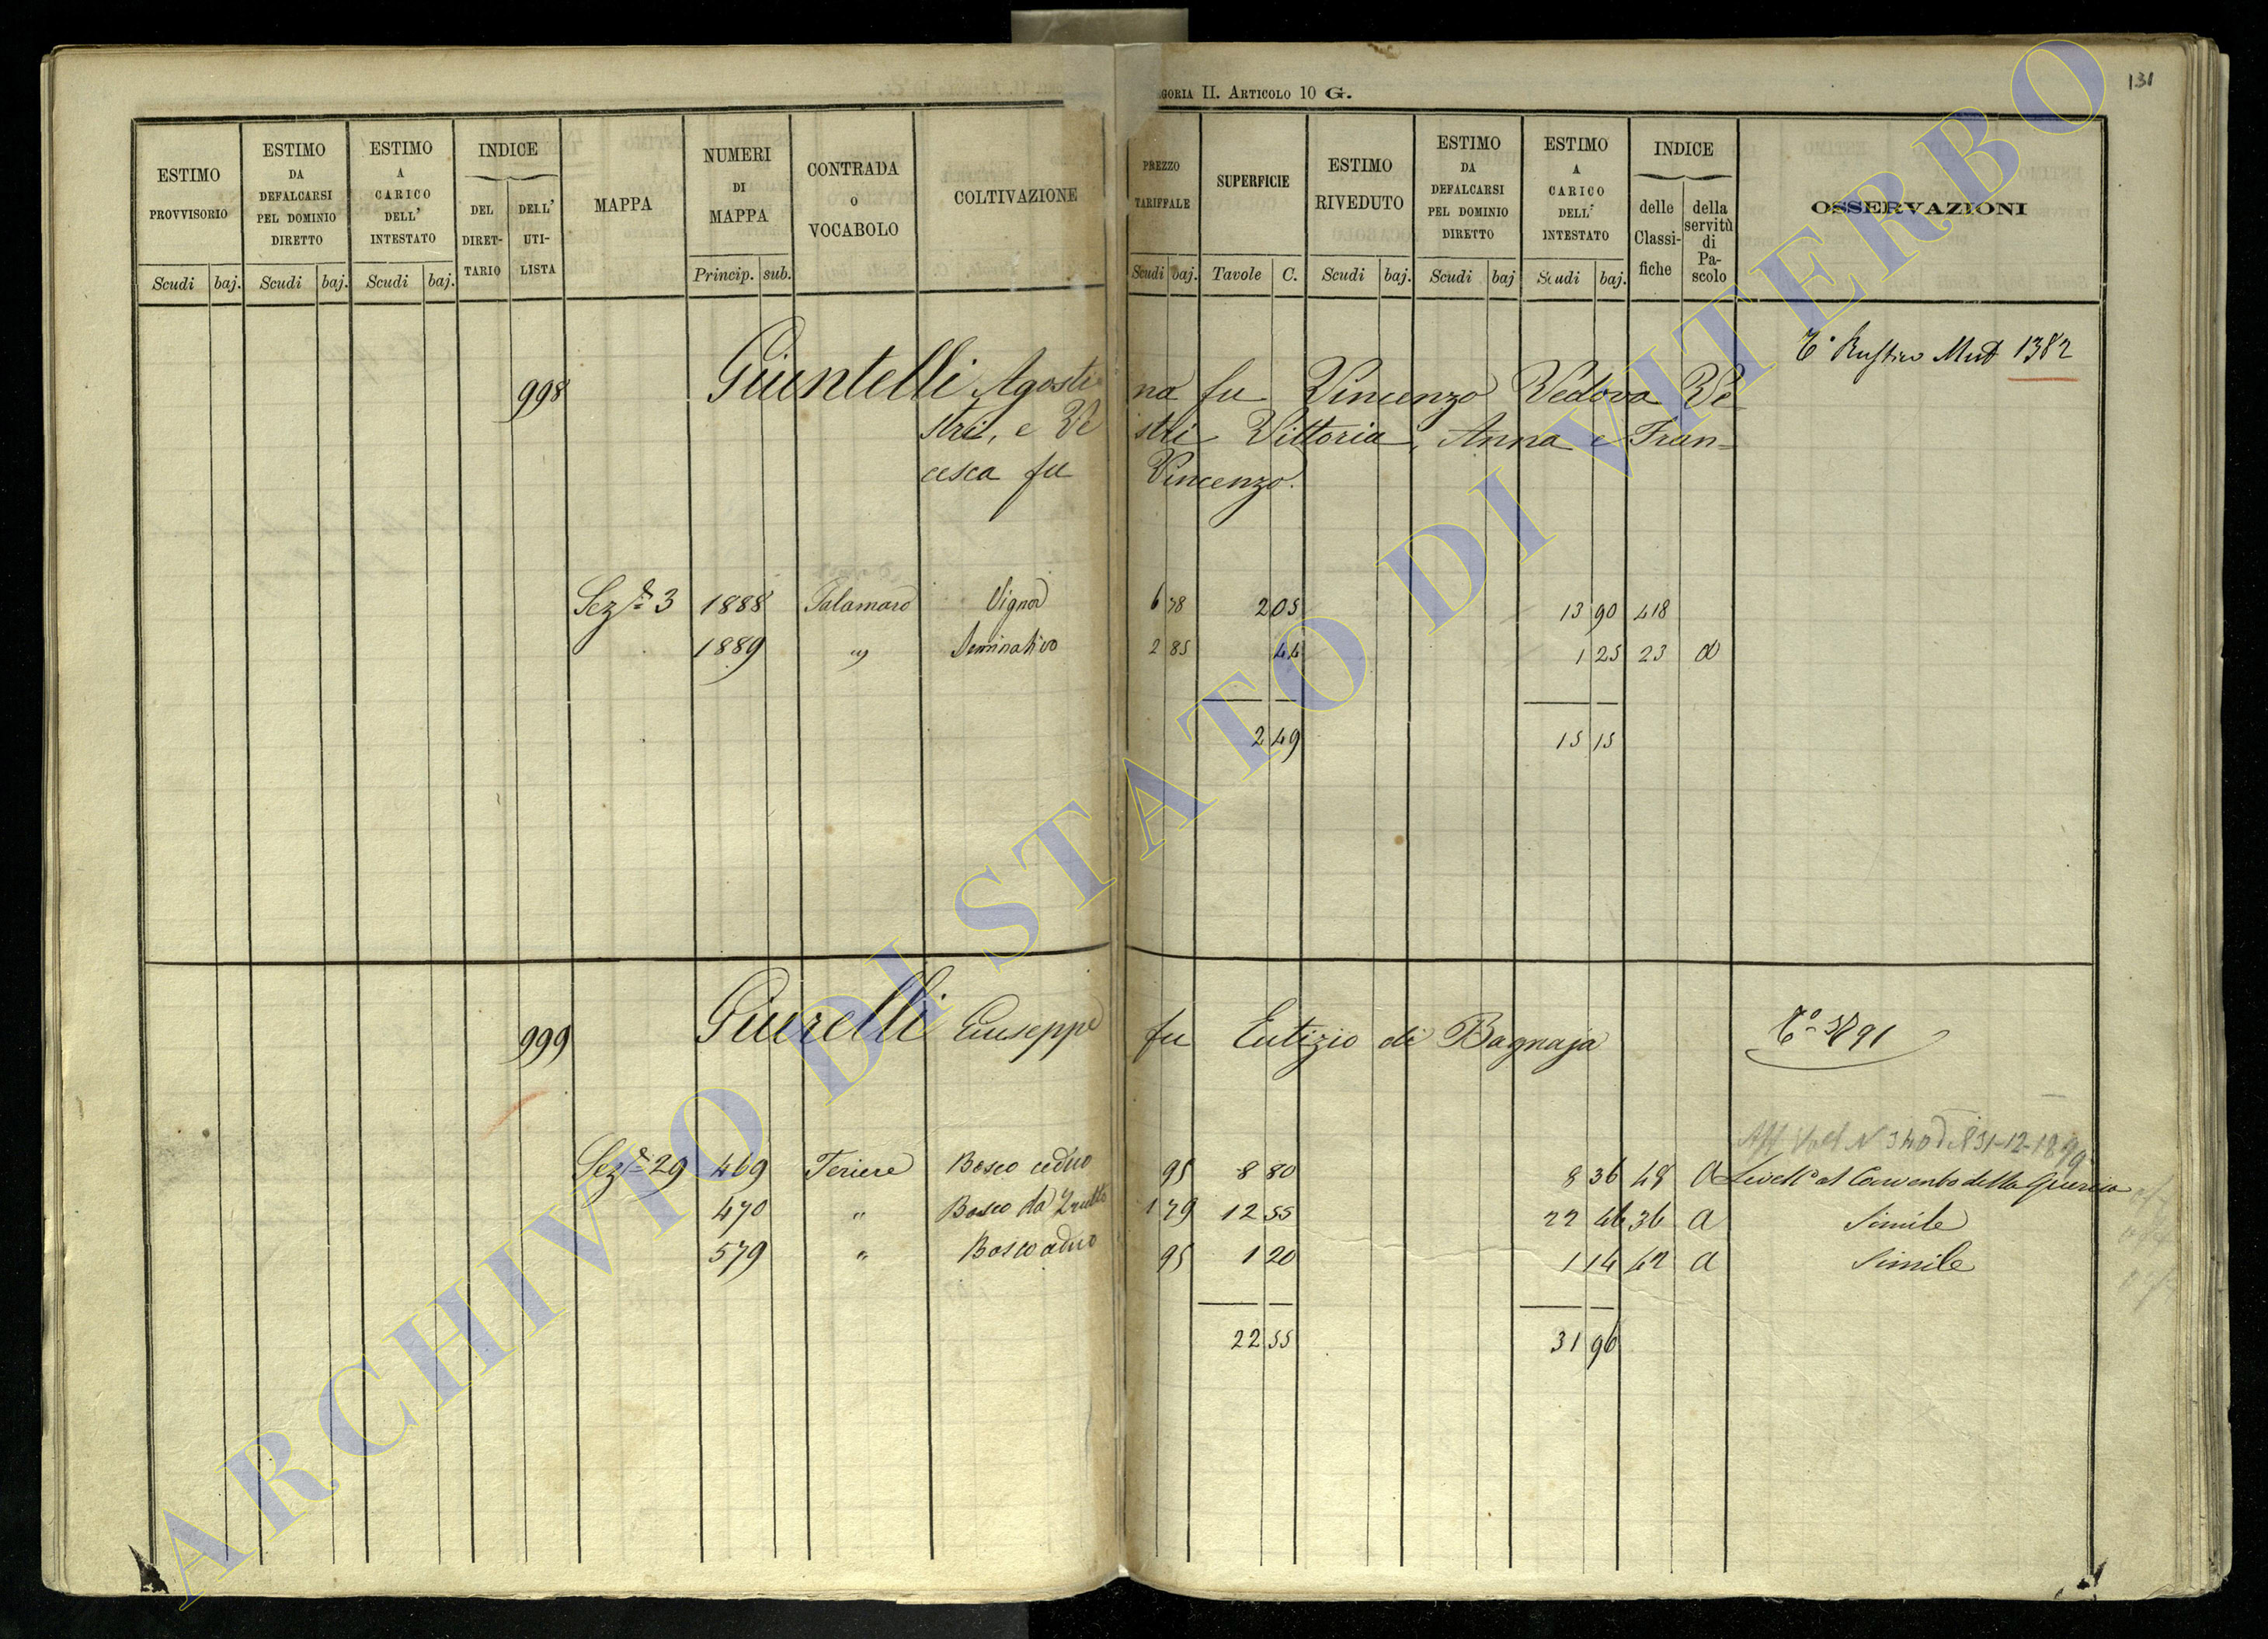 GORIA II. ARTICOLO 10 G.
131
ESTIMO PROVVISORIO
ESTIMO DA DEFALCARSI PEL DOMINIO DIRETTO
ESTIMO A CARICO DELL' INTESTATO
INDICE
DEL DIRET-TARIO
DELL' UTI-LISTA
MAPPA
NUMERI DI MAPPA
CONTRADA O VOCABOLO
COLTIVAZIONE
PREZZO TARIFFALE
SUPERFICIE
ESTIMO RIVEDUTO
ESTIMO DA DEFALCARSI PEL DOMINIO DIRETTO
ESTIMO A CARICO DELL' INTESTATO
INDICE
delle Classi-fiche
della servitù di Pa-scolo
OSSERVAZIONI
Scudi baj. Scudi baj. Scudi baj. Princip. sub. Scudi baj. Tavole C. Scudi baj. Scudi baj Scudi baj.
Rustico 1382
998 Giuntelli Agosti na fu Vincenzo Vedova Ve-
stri, e Ve stri Vittoria, Anna e Fran=
cesca fu Vincenzo.
Sez.e 3 1888 Palamaro Vigna 6 78 2 05 13 90 418
1889 " Seminativo 2 85 44 1 25 23 a
2 49 15 15
999 Giurelli Giuseppe fu Eutizio di Bagnaja
31-12-1899
Sez.e 29 469 Teriere Bosco ceduo 95 8 80 8 36 48 a Livell.o al Convento della Quercia
470 " Bosco da Frutto 1 79 12 55 22 46 36 a Simile
579 " Bosco ceduo 95 1 20 1 14 42 a Simile
22 55 31 96
ARCHIVIO DI STATO DI VITERBO